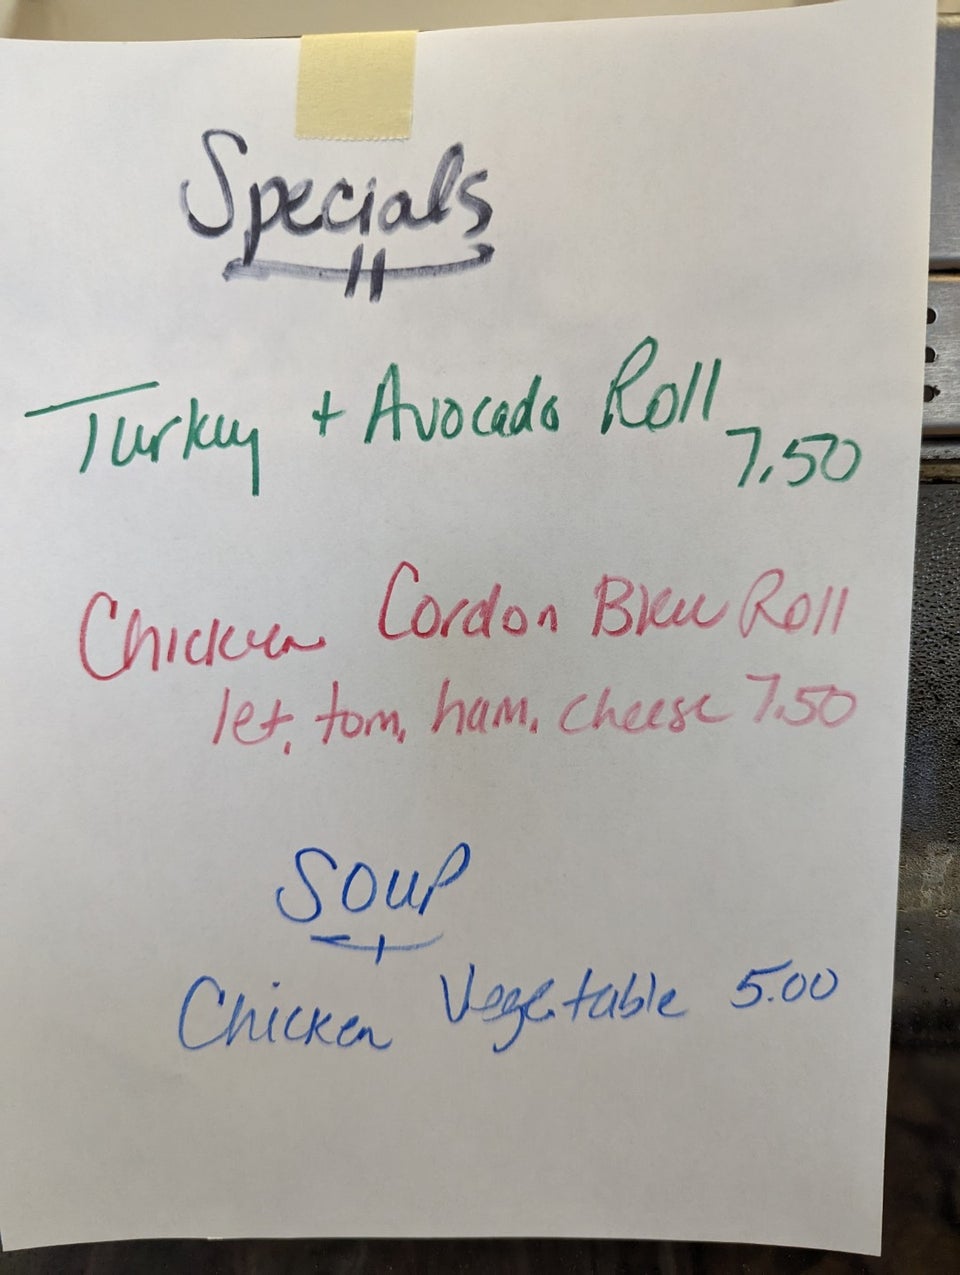 Specials
Turkey + Avocado Roll
7.50
Chicken Cordon Bleu Roll
let, tom, ham, cheese 7.50
Soup
Chicken Vegetable 5.00